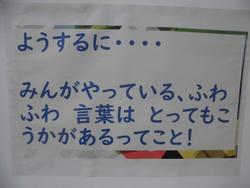 ようするに・・・・
みんがやっている、ふわ
ふわ 言葉は とってもこ
うかがあるってこと!